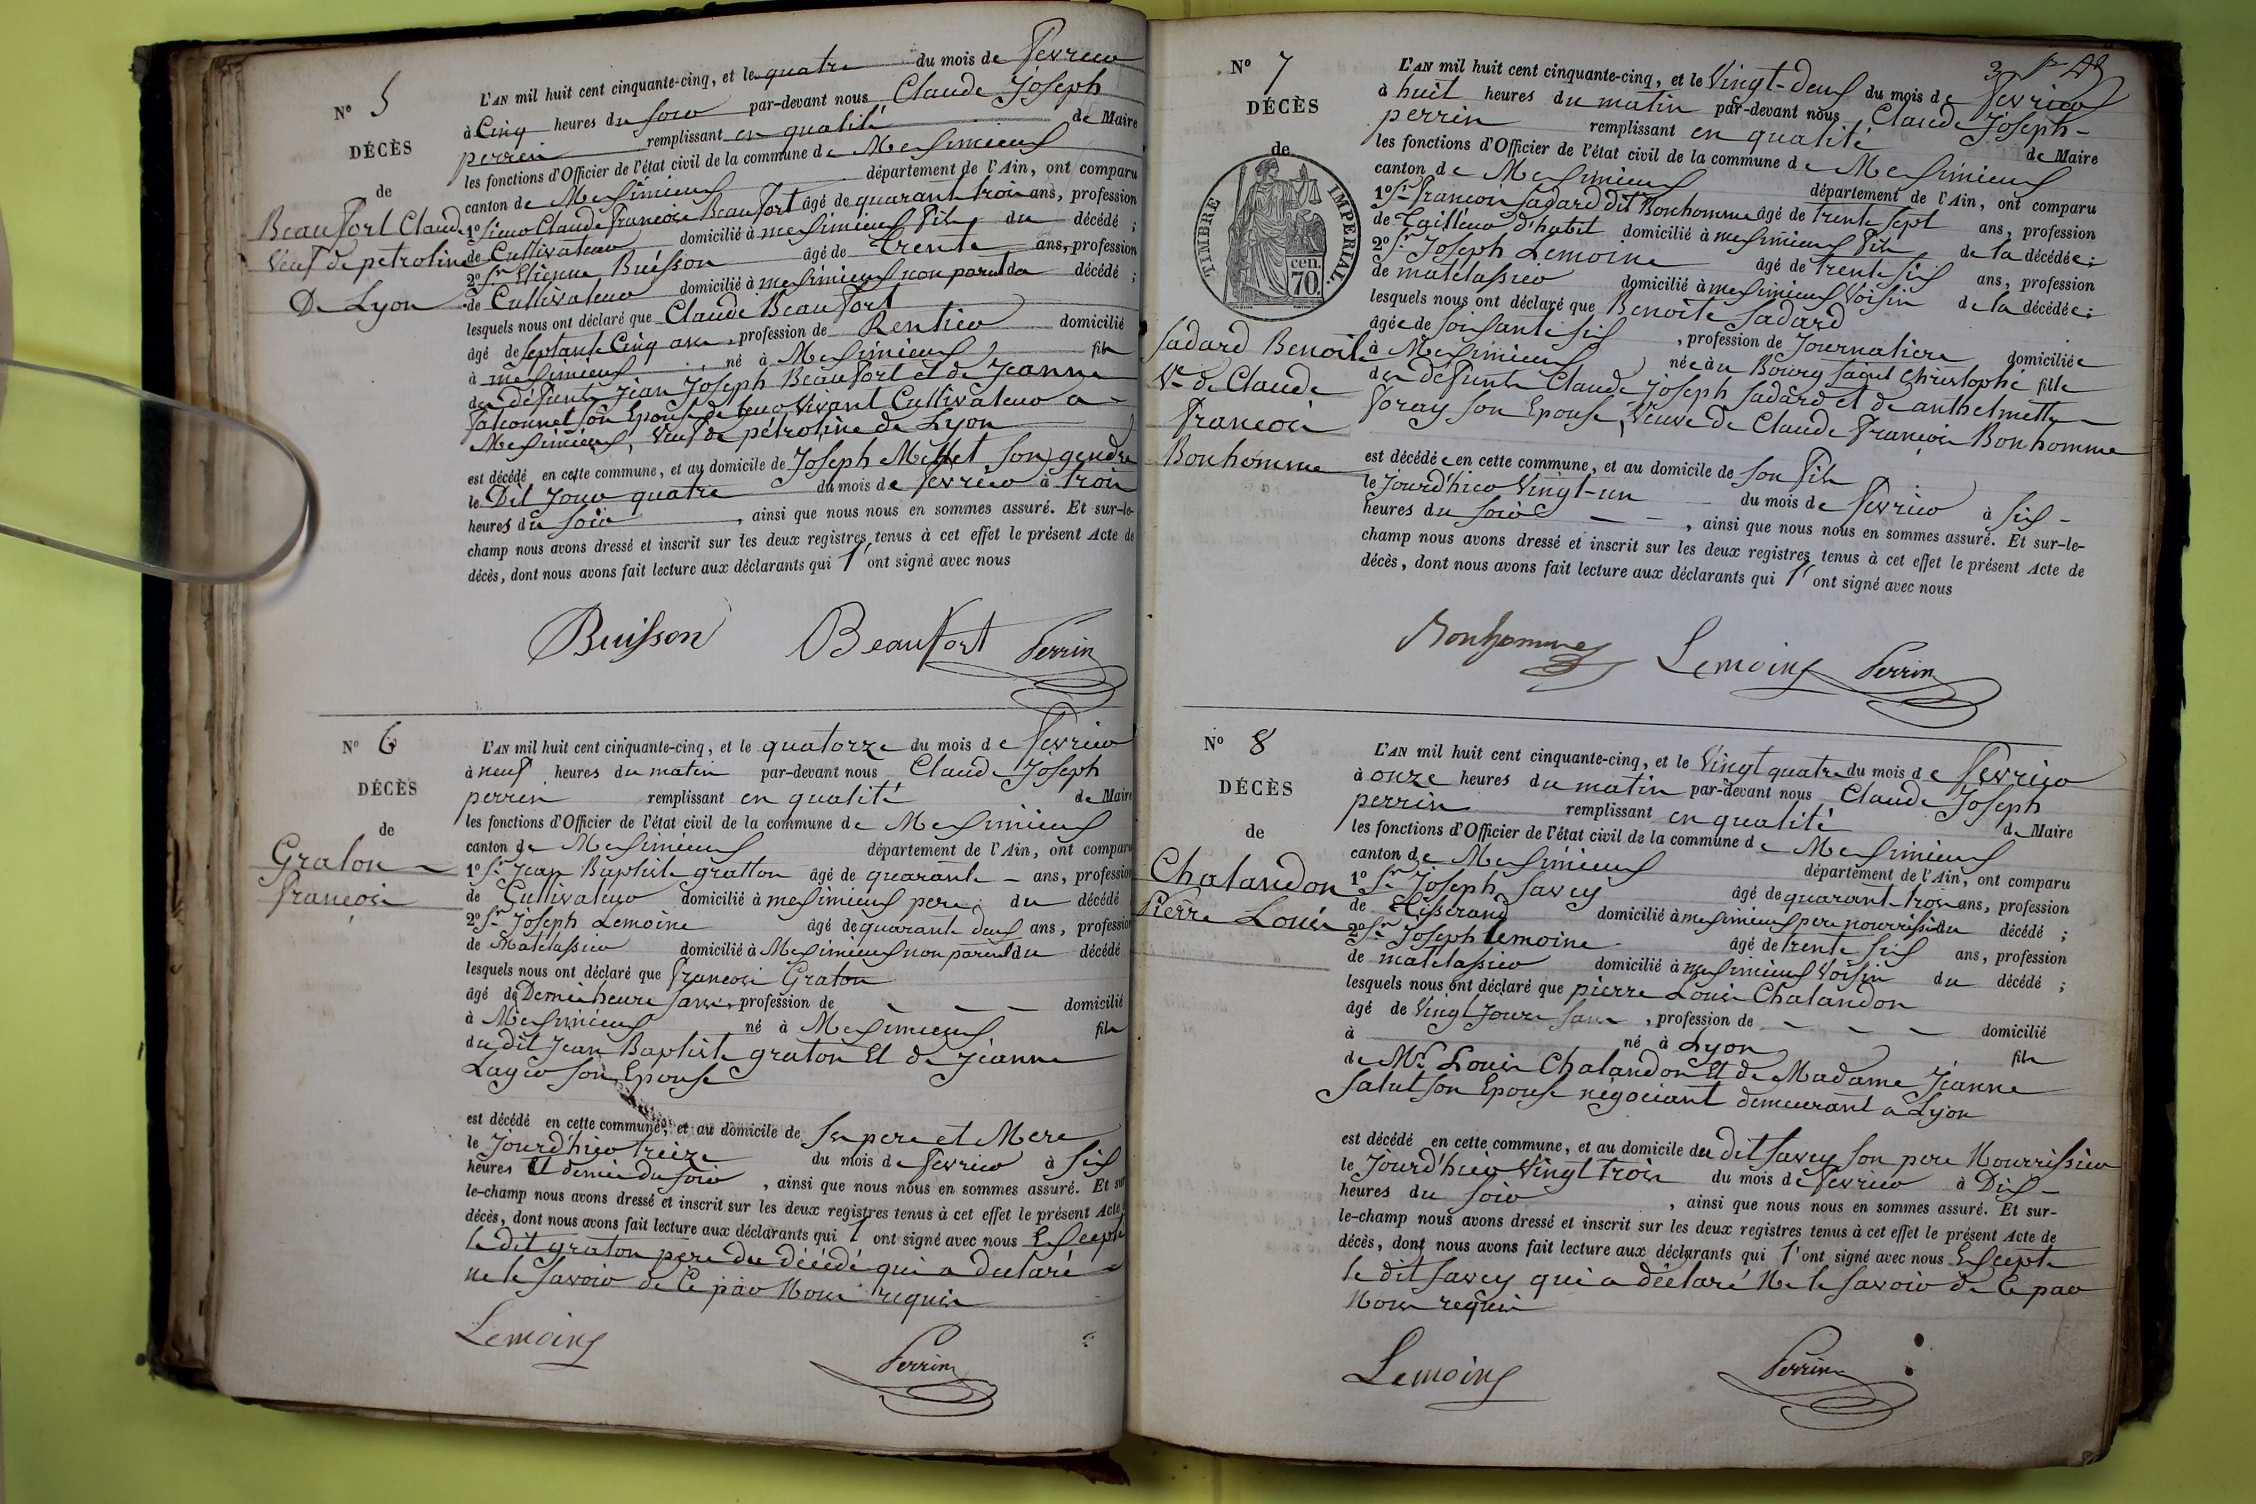 N° 5
DÉCÈS
de
Beaufort Claude
Veuf de pétroline
De Lyon
L'AN mil huit cent cinquante-cinq, et le quatre du mois de fevrier
à Cinq heures du soir par-devant nous Claude Joseph
perrin remplissant en qualité de Maire
les fonctions d'Officier de l'état civil de la commune de Meximieux
canton de Meximieux département de l'Ain, ont comparu
1° sieur Claude françois Beaufort âgé de quarante trois ans, profession
de Cultivateur domicilié à meximieux fils du décédé ;
2° Sr Etienne Buisson âgé de trente ans, profession
de Cultivateur domicilié à meximieux non parent du décédé ;
lesquels nous ont déclaré que Claude Beaufort
âgé de septante Cinq ans, profession de Rentier domicilié
à meximieux, né à Meximieux fils
des défunts Jean Joseph Beaufort et de Jeanne
falconnet son Epouse de leur vivant Cultivateur a
Meximieux, Veuf de pétroline de Lyon
est décédé en cette commune, et au domicile de Joseph Milliet son gendre
le Dit Jour quatre du mois de fevrier à trois
heures du soir, ainsi que nous nous en sommes assuré. Et sur-le-
champ nous avons dressé et inscrit sur les deux registres tenus à cet effet le présent Acte de
décès, dont nous avons fait lecture aux déclarants qui l' ont signé avec nous
Buisson Beaufort Perrin
N° 6
DÉCÈS
de
Graton
françois
L'AN mil huit cent cinquante-cinq, et le quatorze du mois de fevrier
à neuf heures du matin par-devant nous Claude Joseph
perrin remplissant en qualité de Maire
les fonctions d'Officier de l'état civil de la commune de Meximieux
canton de Meximieux département de l'Ain, ont comparu
1° Sr Jean Baptiste gratton âgé de quarante ans, profession
de Cultivateur domicilié à meximieux pere du décédé
2° Sr Joseph Lemoine âgé de quarante deux ans, profession
de Matelassier domicilié à Meximieux non parent du décédé
lesquels nous ont déclaré que françois Graton
âgé de Demie heure sans, profession de domicilié
à Meximieux né à Meximieux fils
du dit Jean Baptiste graton Et de Jeanne
Layer son Epouse
est décédé en cette commune, et au domicile de ses pere et Mere
le Jourd'hier treize du mois de fevrier à six
heures Et demie du soir, ainsi que nous nous en sommes assuré. Et sur
le-champ nous avons dressé et inscrit sur les deux registres tenus à cet effet le présent Acte
décès, dont nous avons fait lecture aux déclarants qui l' ont signé avec nous Excepté
le dit graton pere du décédé qui a declaré
ne le savoir de Ce par Nous requis
Lemoine Perrin
3
N° 7
DÉCÈS
de
TIMBRE IMPERIAL.
cen.
70.
Sadard Benoite
Ve de Claude
françois
Bonhomme
L'AN mil huit cent cinquante-cinq, et le Vingt-deux du mois de fevrier
à huit heures du matin par-devant nous Claude Joseph
perrin remplissant en qualité de Maire
les fonctions d'Officier de l'état civil de la commune de Meximieux
canton de Meximieux département de l'Ain, ont comparu
1° Sr françois Sadard dit Bonhomme âgé de trente sept ans, profession
de Tailleur d'habit domicilié à meximieux fils de la décédée ;
2° Sr Joseph Lemoine âgé de trente six ans, profession
de matelassier domicilié à meximieux Voisin de la décédée ;
lesquels nous ont déclaré que Benoite Sadard
âgée de soixante six, profession de Journaliere domiciliée
à Meximieux née au Bourg Saint Christophe fille
des défunts Claude Joseph Sadard et de anthelmette
foray son Epouse, Veuve de Claude françois Bonhomme
est décédée en cette commune, et au domicile de son fils
le Jourd'hier Vingt-un du mois de fevrier à six
heures du soir, ainsi que nous nous en sommes assuré. Et sur-le-
champ nous avons dressé et inscrit sur les deux registres tenus à cet effet le présent Acte de
décès, dont nous avons fait lecture aux déclarants qui l' ont signé avec nous
Bonhomme Lemoine Perrin
N° 8
DÉCÈS
de
Chalandon
Pierre Louis
L'AN mil huit cent cinquante-cinq, et le Vingt quatre du mois de fevrier
à onze heures du matin par-devant nous Claude Joseph
perrin remplissant en qualité de Maire
les fonctions d'Officier de l'état civil de la commune de Meximieux
canton de Meximieux département de l'Ain, ont comparu
1° Sr Joseph Savey âgé de quarante trois ans, profession
de tisserand domicilié à meximieux pere nourrissier du décédé ;
2° Sr Joseph Lemoine âgé de trente six ans, profession
de matelassier domicilié à meximieux Voisin du décédé ;
lesquels nous ont déclaré que pierre Louis Chalandon
âgé de Vingt Jours sans, profession de domicilié
à né à Lyon fils
de Mr Louis Chalandon Et de Madame Jeanne
Salut son Epouse négociant demeurant a Lyon
est décédé en cette commune, et au domicile du dit Savey son pere Nourrissier
le Jourd'hier Vingt trois du mois de fevrier à Dix
heures du soir, ainsi que nous nous en sommes assuré. Et sur-
le-champ nous avons dressé et inscrit sur les deux registres tenus à cet effet le présent Acte de
décès, dont nous avons fait lecture aux déclarants qui l' ont signé avec nous Excepté
le dit Savey qui a déclaré Ne le savoir de Ce par
Nous requis
Lemoine Perrin